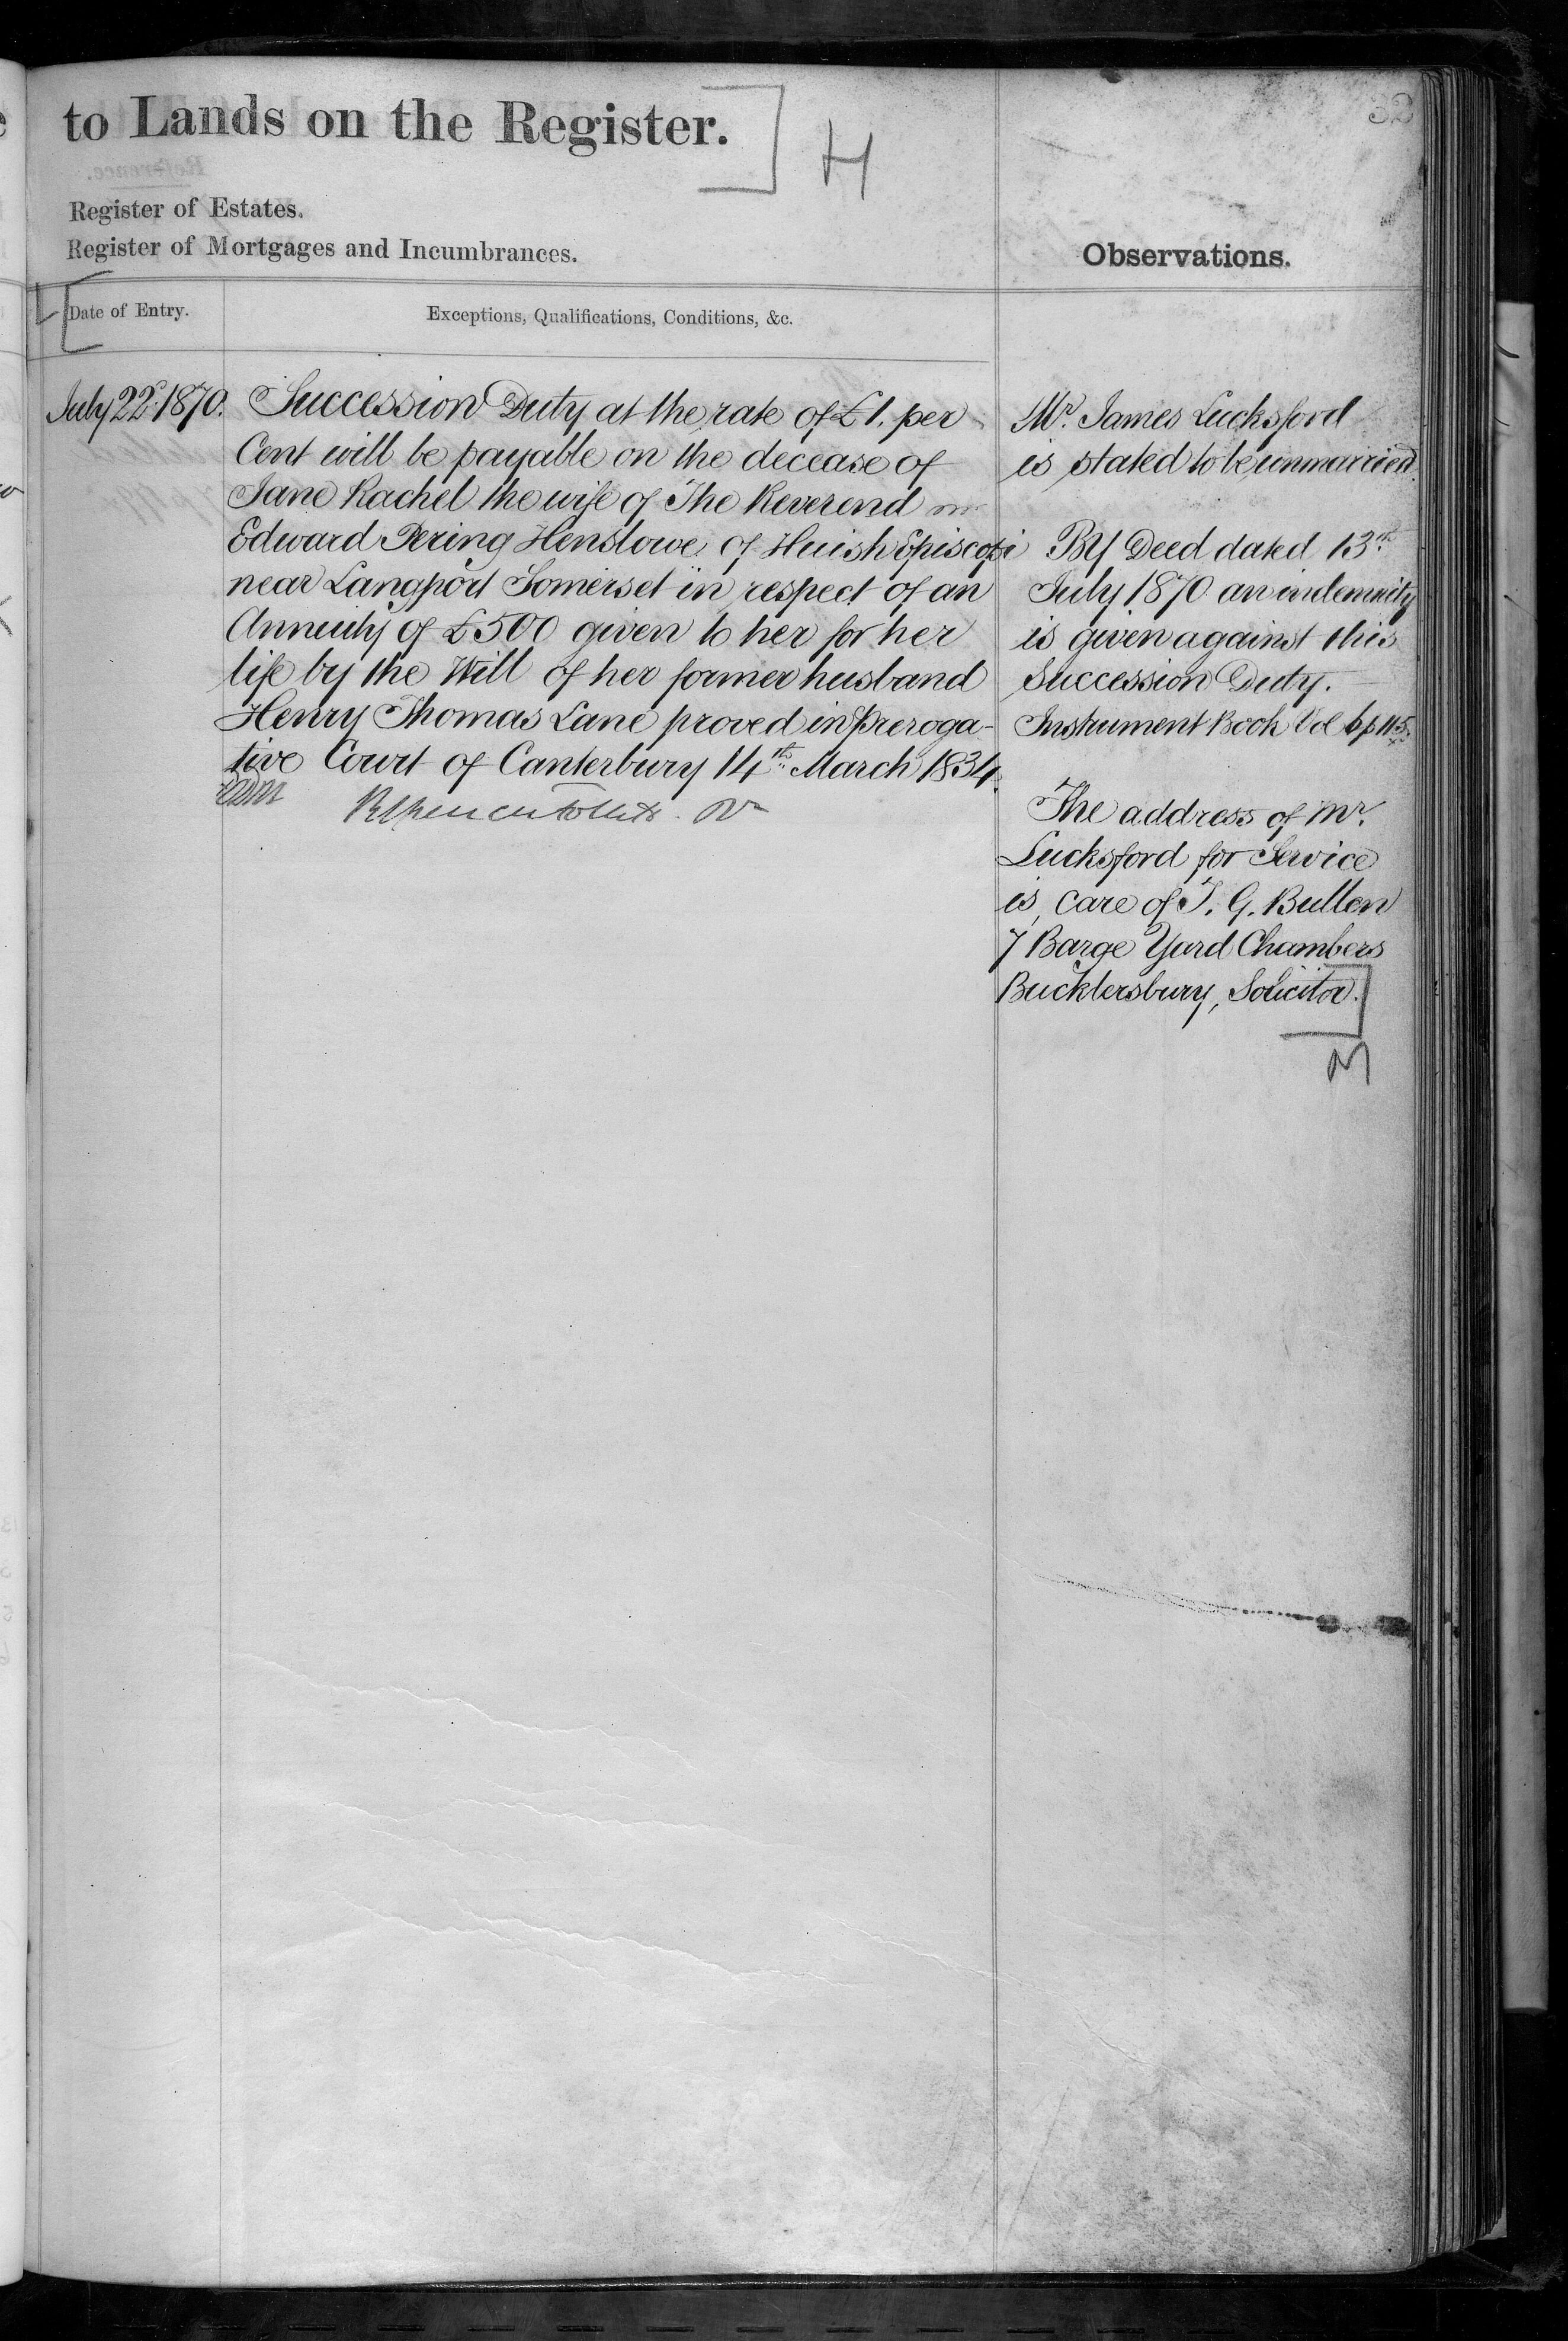 32
to Lands on the Register.
H
Register of Estates.
Register of Mortgages and Incumbrances.
Observations.
Date of Entry.
Exceptions, Qualifications, Conditions, &c.
July 22d. 1870.
Succession Duty at the rate of £1. per
Cent will be payable on the decease of
Jane Rachel the wife of The Reverend
Edward Pering Henslowe of Huish Episcopi
near Langport Somerset in respect of an
Annuity of £500 given to her for her
life by the Will of her former husband
Henry Thomas Lane proved in Preroga-
tive Court of Canterbury 14th. March 1834.
Mr. James Lucksford
is stated to be unmarried.
By Deed dated 13th.
July 1870 an indemnity
is given against this
Succession Duty.
Instrument Book Vol 6 p 115.
The address of Mr.
Lucksford for Service
is, care of T. G. Bullen
7 Barge Yard Chambers
Bucklersbury, Solicitor.